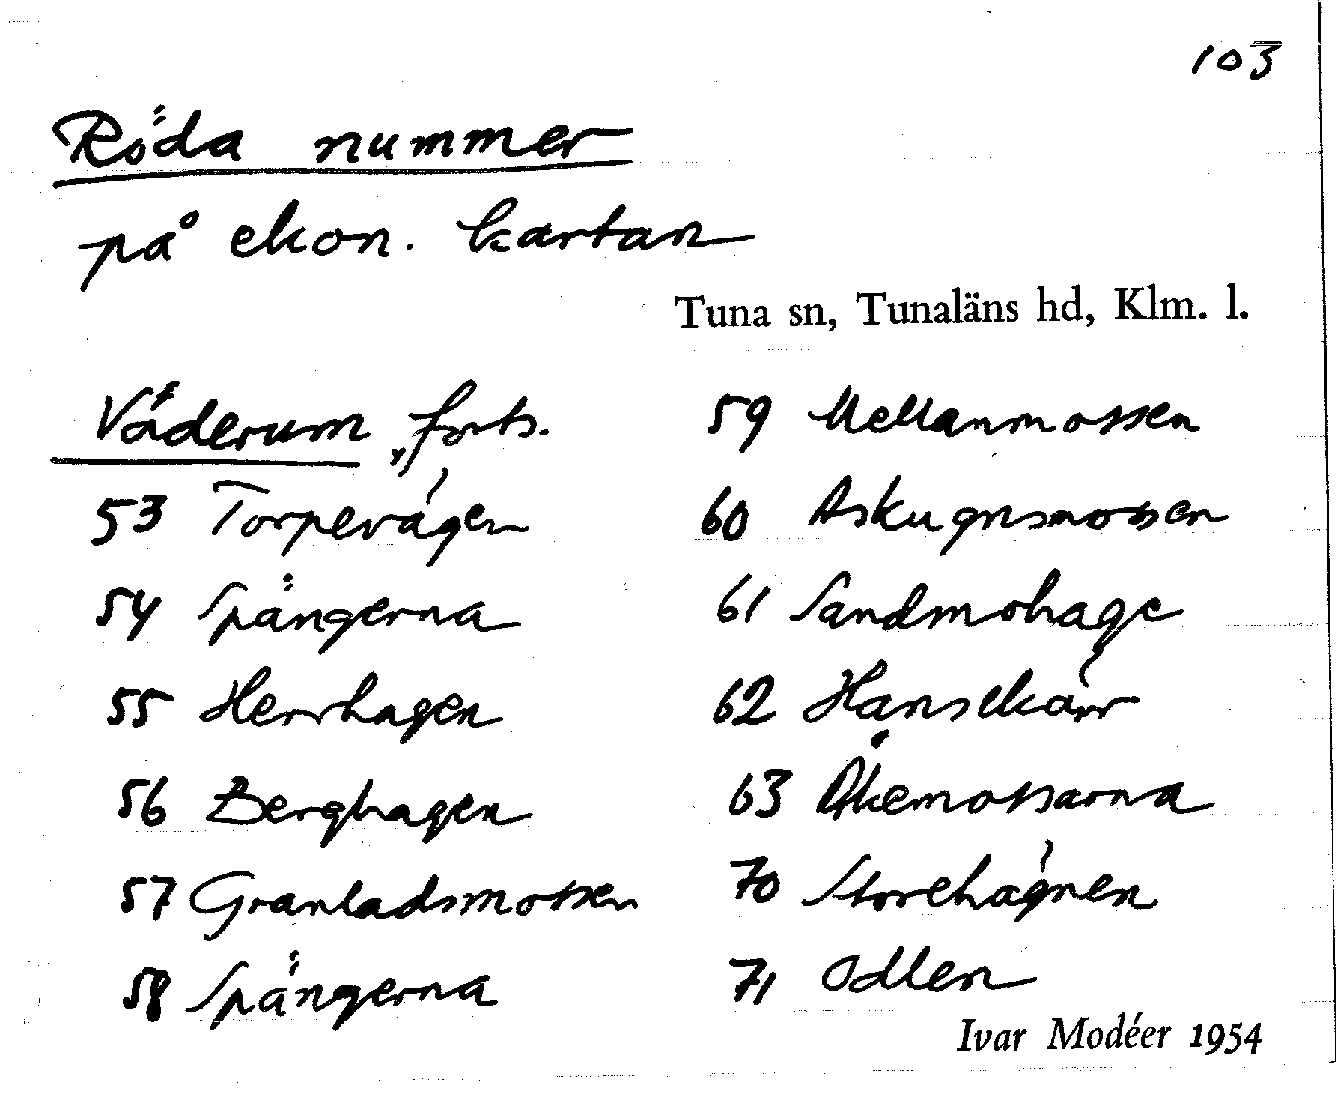 103
Röda nummer
på ekon. kartan
Tuna sn, Tunaläns hd, Klm. l.
Väderum, forts.
53 Torpevägen
54 Spängerna
55 Herrhagen
56 Berghagen
57 Granladsmossen
58 Spängerna
59 Mellanmossen
60 Askugnsmossen
61 Sandmohage
62 Hansekärr
63 Åkemossarna
70 Storehägnen
71 Odlen
Ivar Modéer 1954